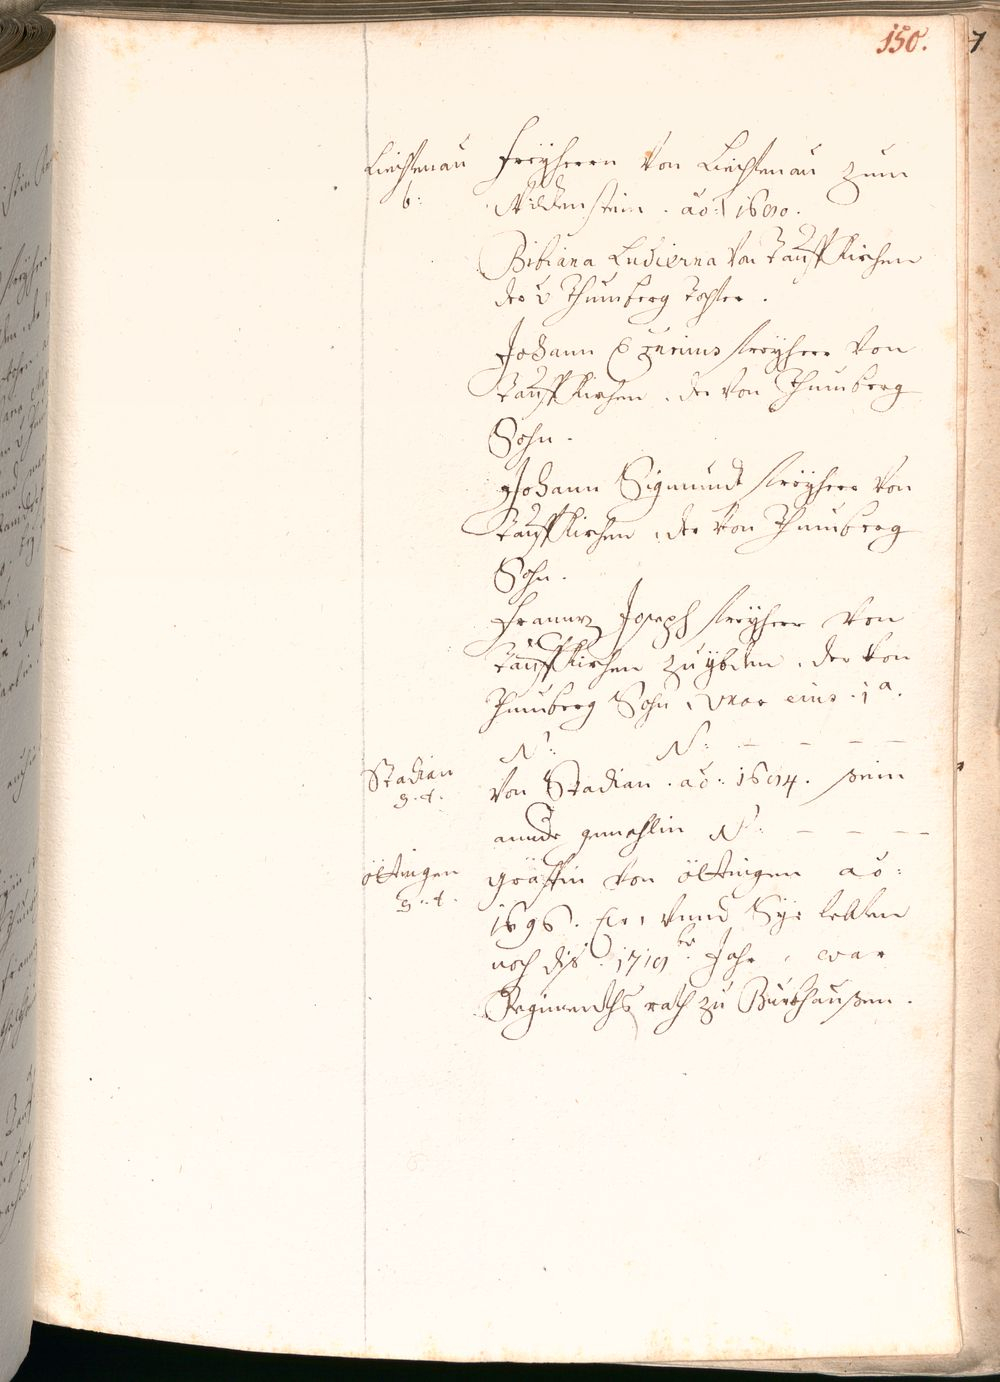 150.
7
Liechtenau
b:
freÿherrn von Liechtenau zum
Wildenstein . ao: 1690.
Bibiana Lucierna von Tauffkirchen
der v Thumberg Tochter .
Johann freÿherr von
Tauffkirchen . der von Thumberg
Sohn .
Johann Sigmundt freÿherr von
Tauffkirchen , der von Thumberg
Sohn .
Frannz Joseph freÿherr von
Tauffkirchen zu ÿbden . der von
Thumberg Sohn , vxor eius . 1ª.
N: N: – – – –
Stadian
g. t.
von Stadian . ao: 1694. sein
annder gemahlin N: – – – –
öttingen
g. t.
gräffin von öttingen ao:
1696. Er, vnnd Sÿe lebten
noch diß 1719ter Jahr , war
Regimenths rath zu Burkhaußen .